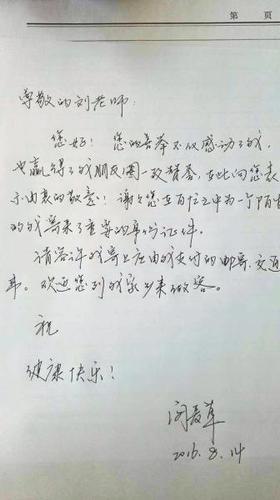 第 页
尊敬的刘老师：
您好！您的善举不仅感动了我，
也赢得了我朋友圈一致赞誉，在此向您表
示由衷的敬意！谢谢您在百忙之中为一个陌生
的我寄来了重要的身份证件。
请容许我寄上应由我支付的邮寄、交通
费。欢迎您到我家乡来做客。
祝
健康快乐！
2016.8.14